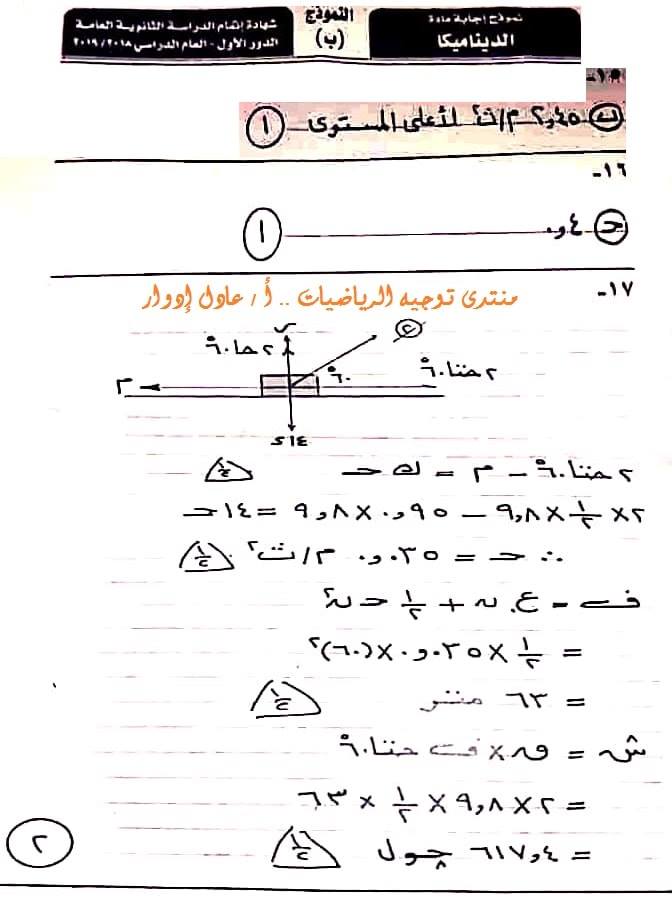 نموذج إجابة مادة
الديناميكا
النموذج
(ب)
شهادة إتمام الدراسة الثانوية العامة
الدور الأول - العام الدراسى ٢٠١٨/٢٠١٩
١٥-
٢,٤٥ م/ث٢ لأعلى المستوى ١
١٦-
ح ٠,٤ ١
١٧-
منتدى توجيه الرياضيات .. أ / عادل إدوار
٢ حا ٦٠° ر ٢
م ٦٠° ٢ حتا ٦٠°
١٤ د
٢ حتا ٦٠° - م = ك ح ١/٢
٢ × ١/٢ × ٩,٨ - ٠,٩٥ × ٩,٨ = ١٤ ح
∴ ح = ٠,٠٣٥ م/ث٢ ١/٢
ف = ع. ن + ١/٢ ح ن٢
= ١/٢ × ٠,٠٣٥ × (٦٠)٢
= ٦٣ متر ١/٢
ش = ق × ف حتا ٦٠°
= ٢ × ٩,٨ × ١/٢ × ٦٣
= ٦١٧,٤ چول ١/٢
٢